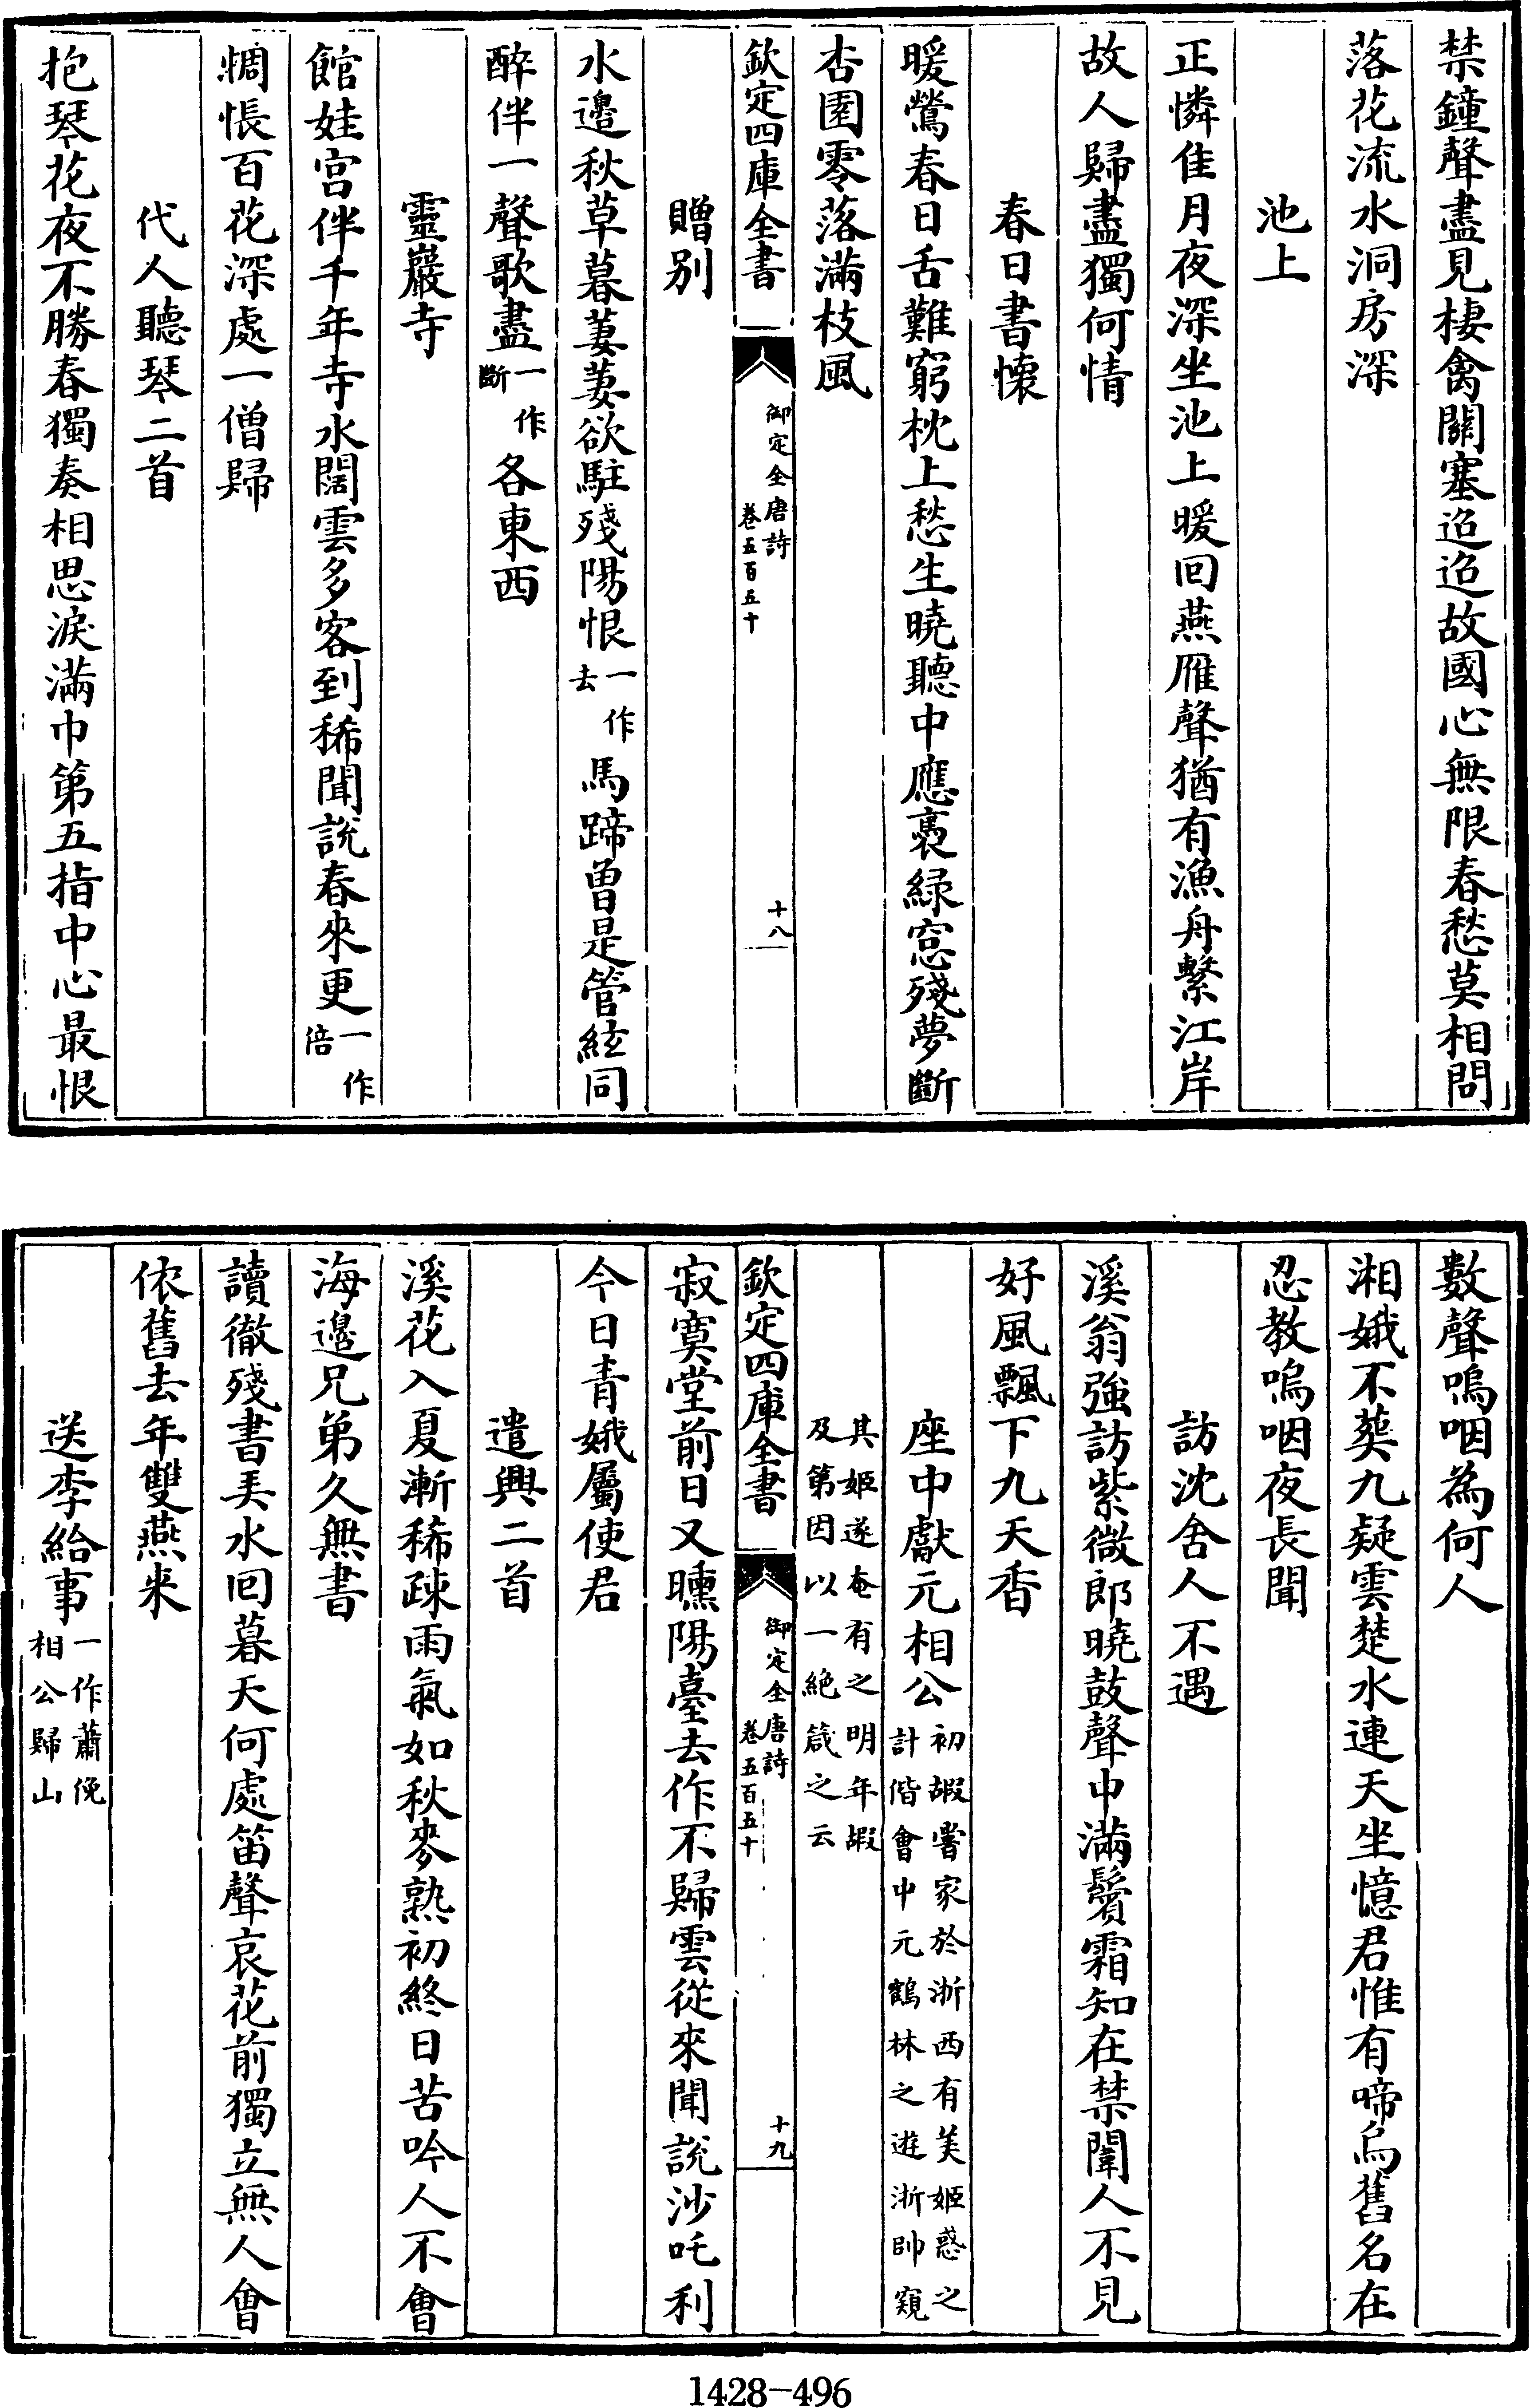 禁鐘聲盡見棲禽關塞迢迢故國心無限春愁莫相問
落花流水洞房深
池上
正憐佳月夜深坐池上暖回燕雁聲猶有漁舟繫江岸
故人歸盡獨何情
春日書懷
暖鶯春日舌難窮枕上愁生曉聽中應裛緑窓殘夢斷
杏園零落滿枝風
欽定四庫全書
御定全唐詩
卷五百五十
十八
贈別
水邊秋草暮萋萋欲駐殘陽恨一作去馬蹄曽是管絃同
醉伴一聲歌盡一作斷各東西
靈巖寺
館娃宫伴千年寺水闊雲多客到稀聞說春來更一作倍
惆悵百花深處一僧歸
代人聽琴二首
抱琴花夜不勝春獨奏相思淚滿巾第五指中心最恨
數聲嗚咽為何人
湘娥不葬九疑雲楚水連天坐憶君惟有啼烏舊名在
忍教嗚咽夜長聞
訪沈舍人不遇
溪翁強訪紫微郎曉鼓聲中滿鬢霜知在禁闈人不見
好風飄下九天香
座中獻元相公初嘏嘗家於浙西有美姬惑之計偕會中元鶴林之遊浙帥窺
其姬遂奄有之明年嘏及第因以一絶箴之云
欽定四庫全書
御定全唐詩
卷五百五十
十九
寂寞堂前日又曛陽臺去作不歸雲從來聞說沙吒利
今日青娥屬使君
遣興二首
溪花入夏漸稀疎雨氣如秋麥熟初終日苦吟人不會
海邊兄弟久無書
讀徹殘書弄水回暮天何處笛聲哀花前獨立無人會
依舊去年雙燕来
送李給事一作蕭俛相公歸山
1428-496